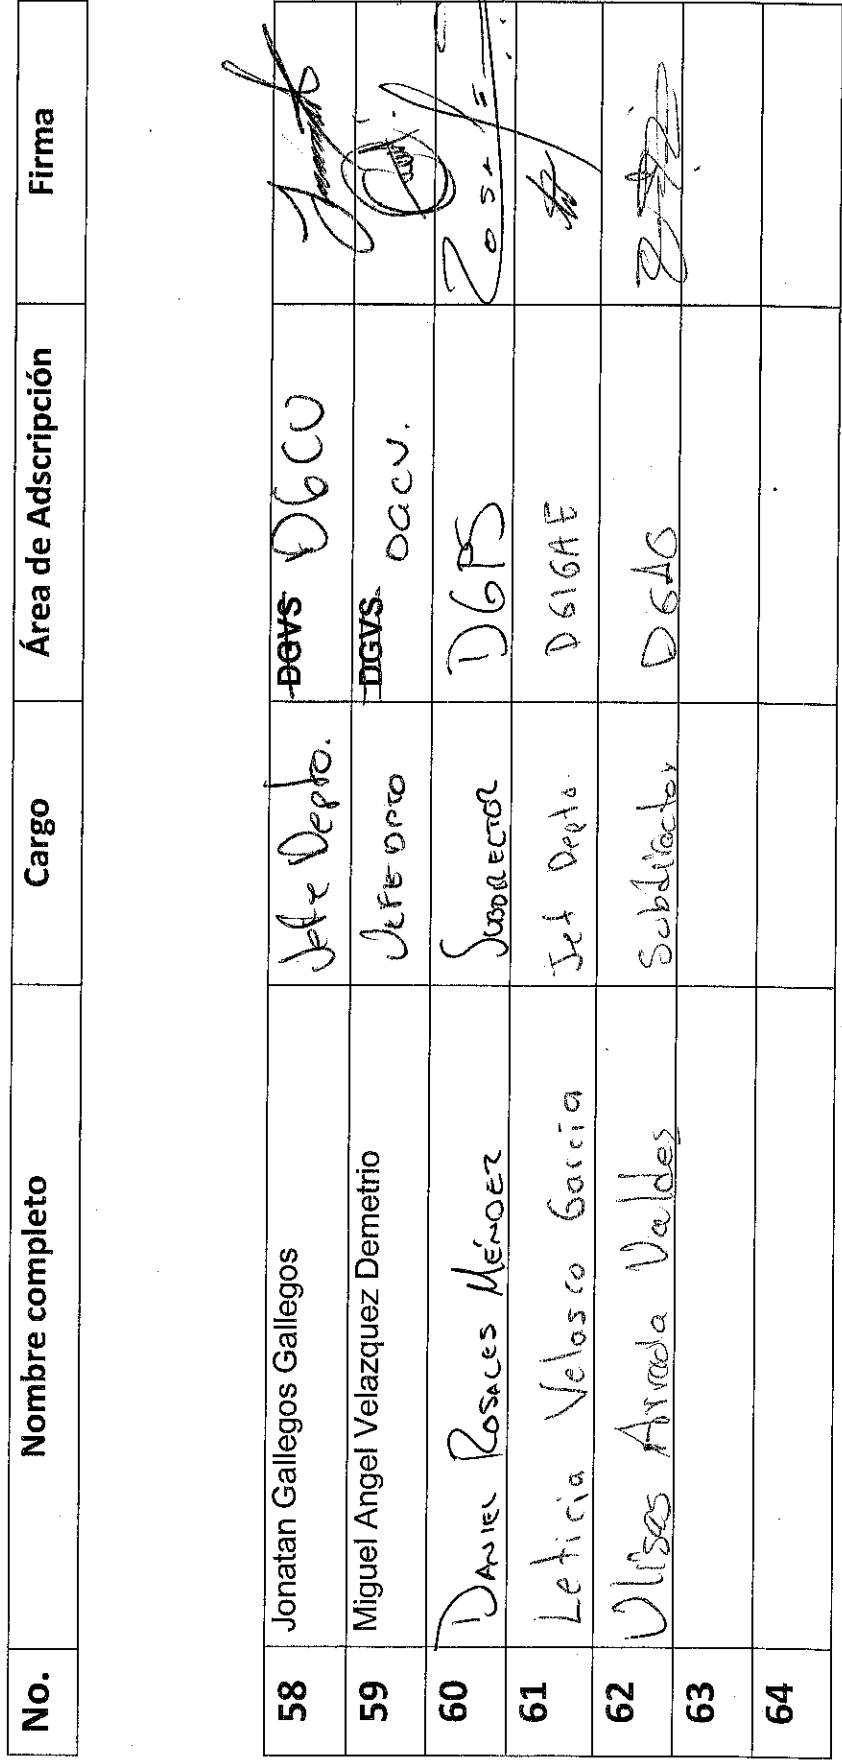 No. Nombre completo Cargo Área de Adscripción Firma
58 Jonatan Gallegos Gallegos Jefe Depto. DGVS DGCV
59 Miguel Angel Velazquez Demetrio JEFE DPTO DGVS DGCV.
60 DANIEL ROSALES MÉNDEZ SUBDRECTOR DGPS
61 Leticia Velasco Garcia Jef Depto. DGIGAE
62 Ulises Arrada Valdes Subdirector DGAG
63
64